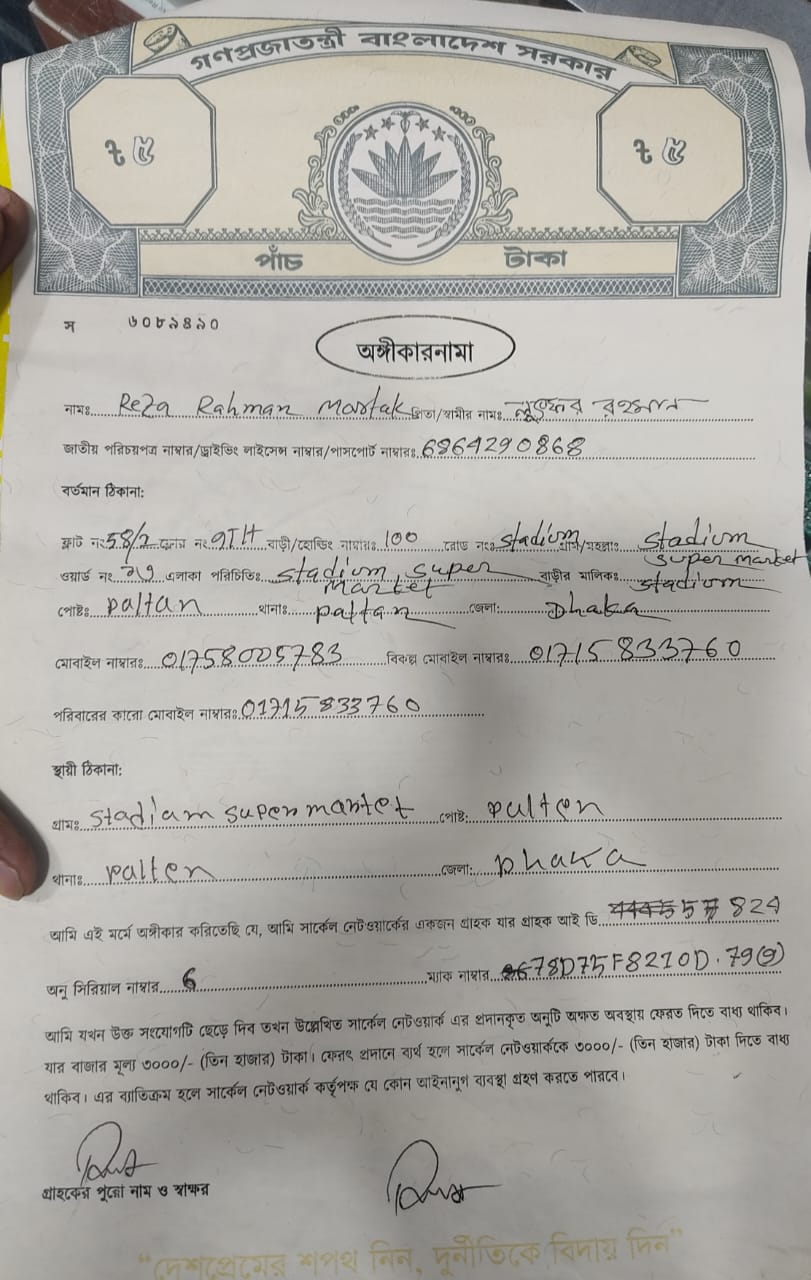 গণপ্রজাতন্ত্রী বাংলাদেশ সরকার
৳ ৫ ৳ ৫
পাঁচ টাকা
স ৬০৮৯৪৯০
অঙ্গীকারনামা
নামঃ Reza Rahman Mostak পিতা/স্বামীর নামঃ লুৎফর রহমান
জাতীয় পরিচয়পত্র নাম্বার/ড্রাইভিং লাইসেন্স নাম্বার/পাসপোর্ট নাম্বারঃ 6864290868
বর্তমান ঠিকানা:
ফ্লাট নং 58/2 ফ্লোর নং 9TH বাড়ী/হোল্ডিং নাম্বারঃ 100 রোড নংঃ stadium গ্রাম/মহল্লাঃ stadium super market
ওয়ার্ড নং এলাকা পরিচিতিঃ stadium super market বাড়ীর মালিকঃ stadium
পোষ্টঃ paltan থানাঃ paltan জেলা: Dhaka
মোবাইল নাম্বারঃ 01758005783 বিকল্প মোবাইল নাম্বারঃ 01715833760
পরিবারের কারো মোবাইল নাম্বারঃ 01715833760
স্থায়ী ঠিকানা:
গ্রামঃ stadiam super market পোষ্ট: palten
থানাঃ palten জেলা: Dhaka
আমি এই মর্মে অঙ্গীকার করিতেছি যে, আমি সার্কেল নেটওয়ার্কের একজন গ্রাহক যার গ্রাহক আই ডি 824
অনু সিরিয়াল নাম্বার 6 ম্যাক নাম্বার 78D75F8210D.79(9)
আমি যখন উক্ত সংযোগটি ছেড়ে দিব তখন উল্লেখিত সার্কেল নেটওয়ার্ক এর প্রদানকৃত অনুটি অক্ষত অবস্থায় ফেরত দিতে বাধ্য থাকিব।
যার বাজার মূল্য ৩০০০/- (তিন হাজার) টাকা। ফেরৎ প্রদানে ব্যর্থ হলে সার্কেল নেটওয়ার্ককে ৩০০০/- (তিন হাজার) টাকা দিতে বাধ্য
থাকিব। এর ব্যতিক্রম হলে সার্কেল নেটওয়ার্ক কর্তৃপক্ষ যে কোন আইনানুগ ব্যবস্থা গ্রহণ করতে পারবে।
গ্রাহকের পুরো নাম ও স্বাক্ষর
"দেশপ্রেমের শপথ নিন, দুর্নীতিকে বিদায় দিন"